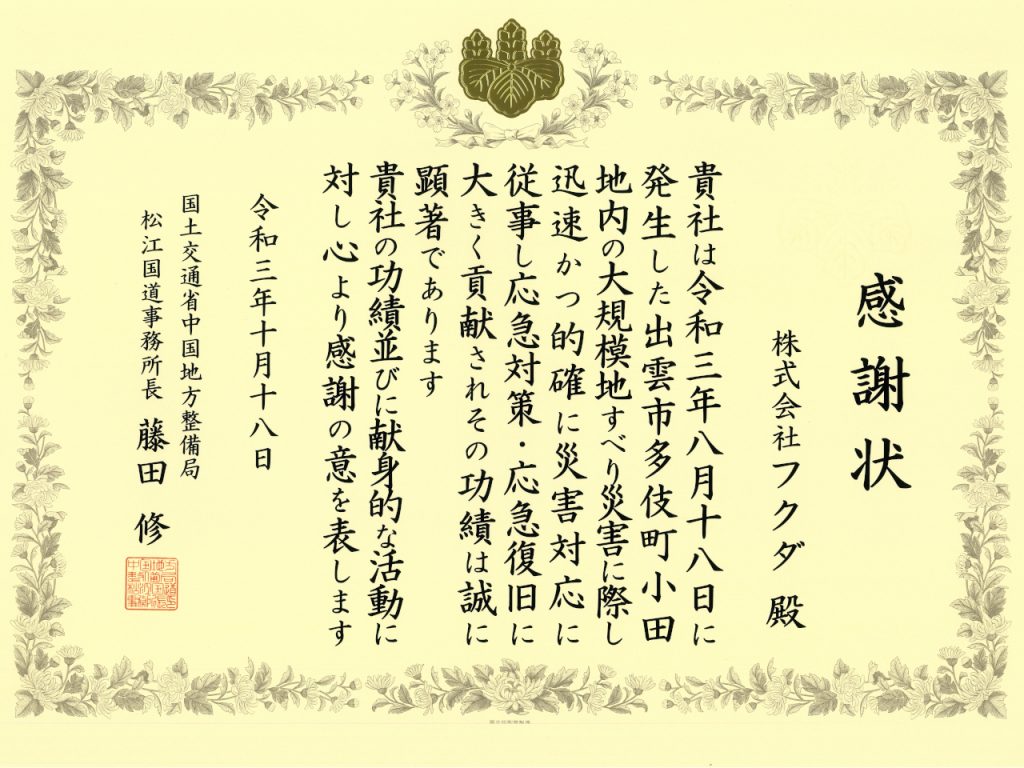 感謝状
株式会社フクダ 殿
貴社は令和三年八月十八日に
発生した出雲市多伎町小田
地内の大規模地すべり災害に際し
迅速かつ的確に災害対応に
従事し応急対策・応急復旧に
大きく貢献されその功績は誠に
顕著であります
貴社の功績並びに献身的な活動に
対し心より感謝の意を表します
令和三年十月十八日
国土交通省中国地方整備局
松江国道事務所長 藤田 修